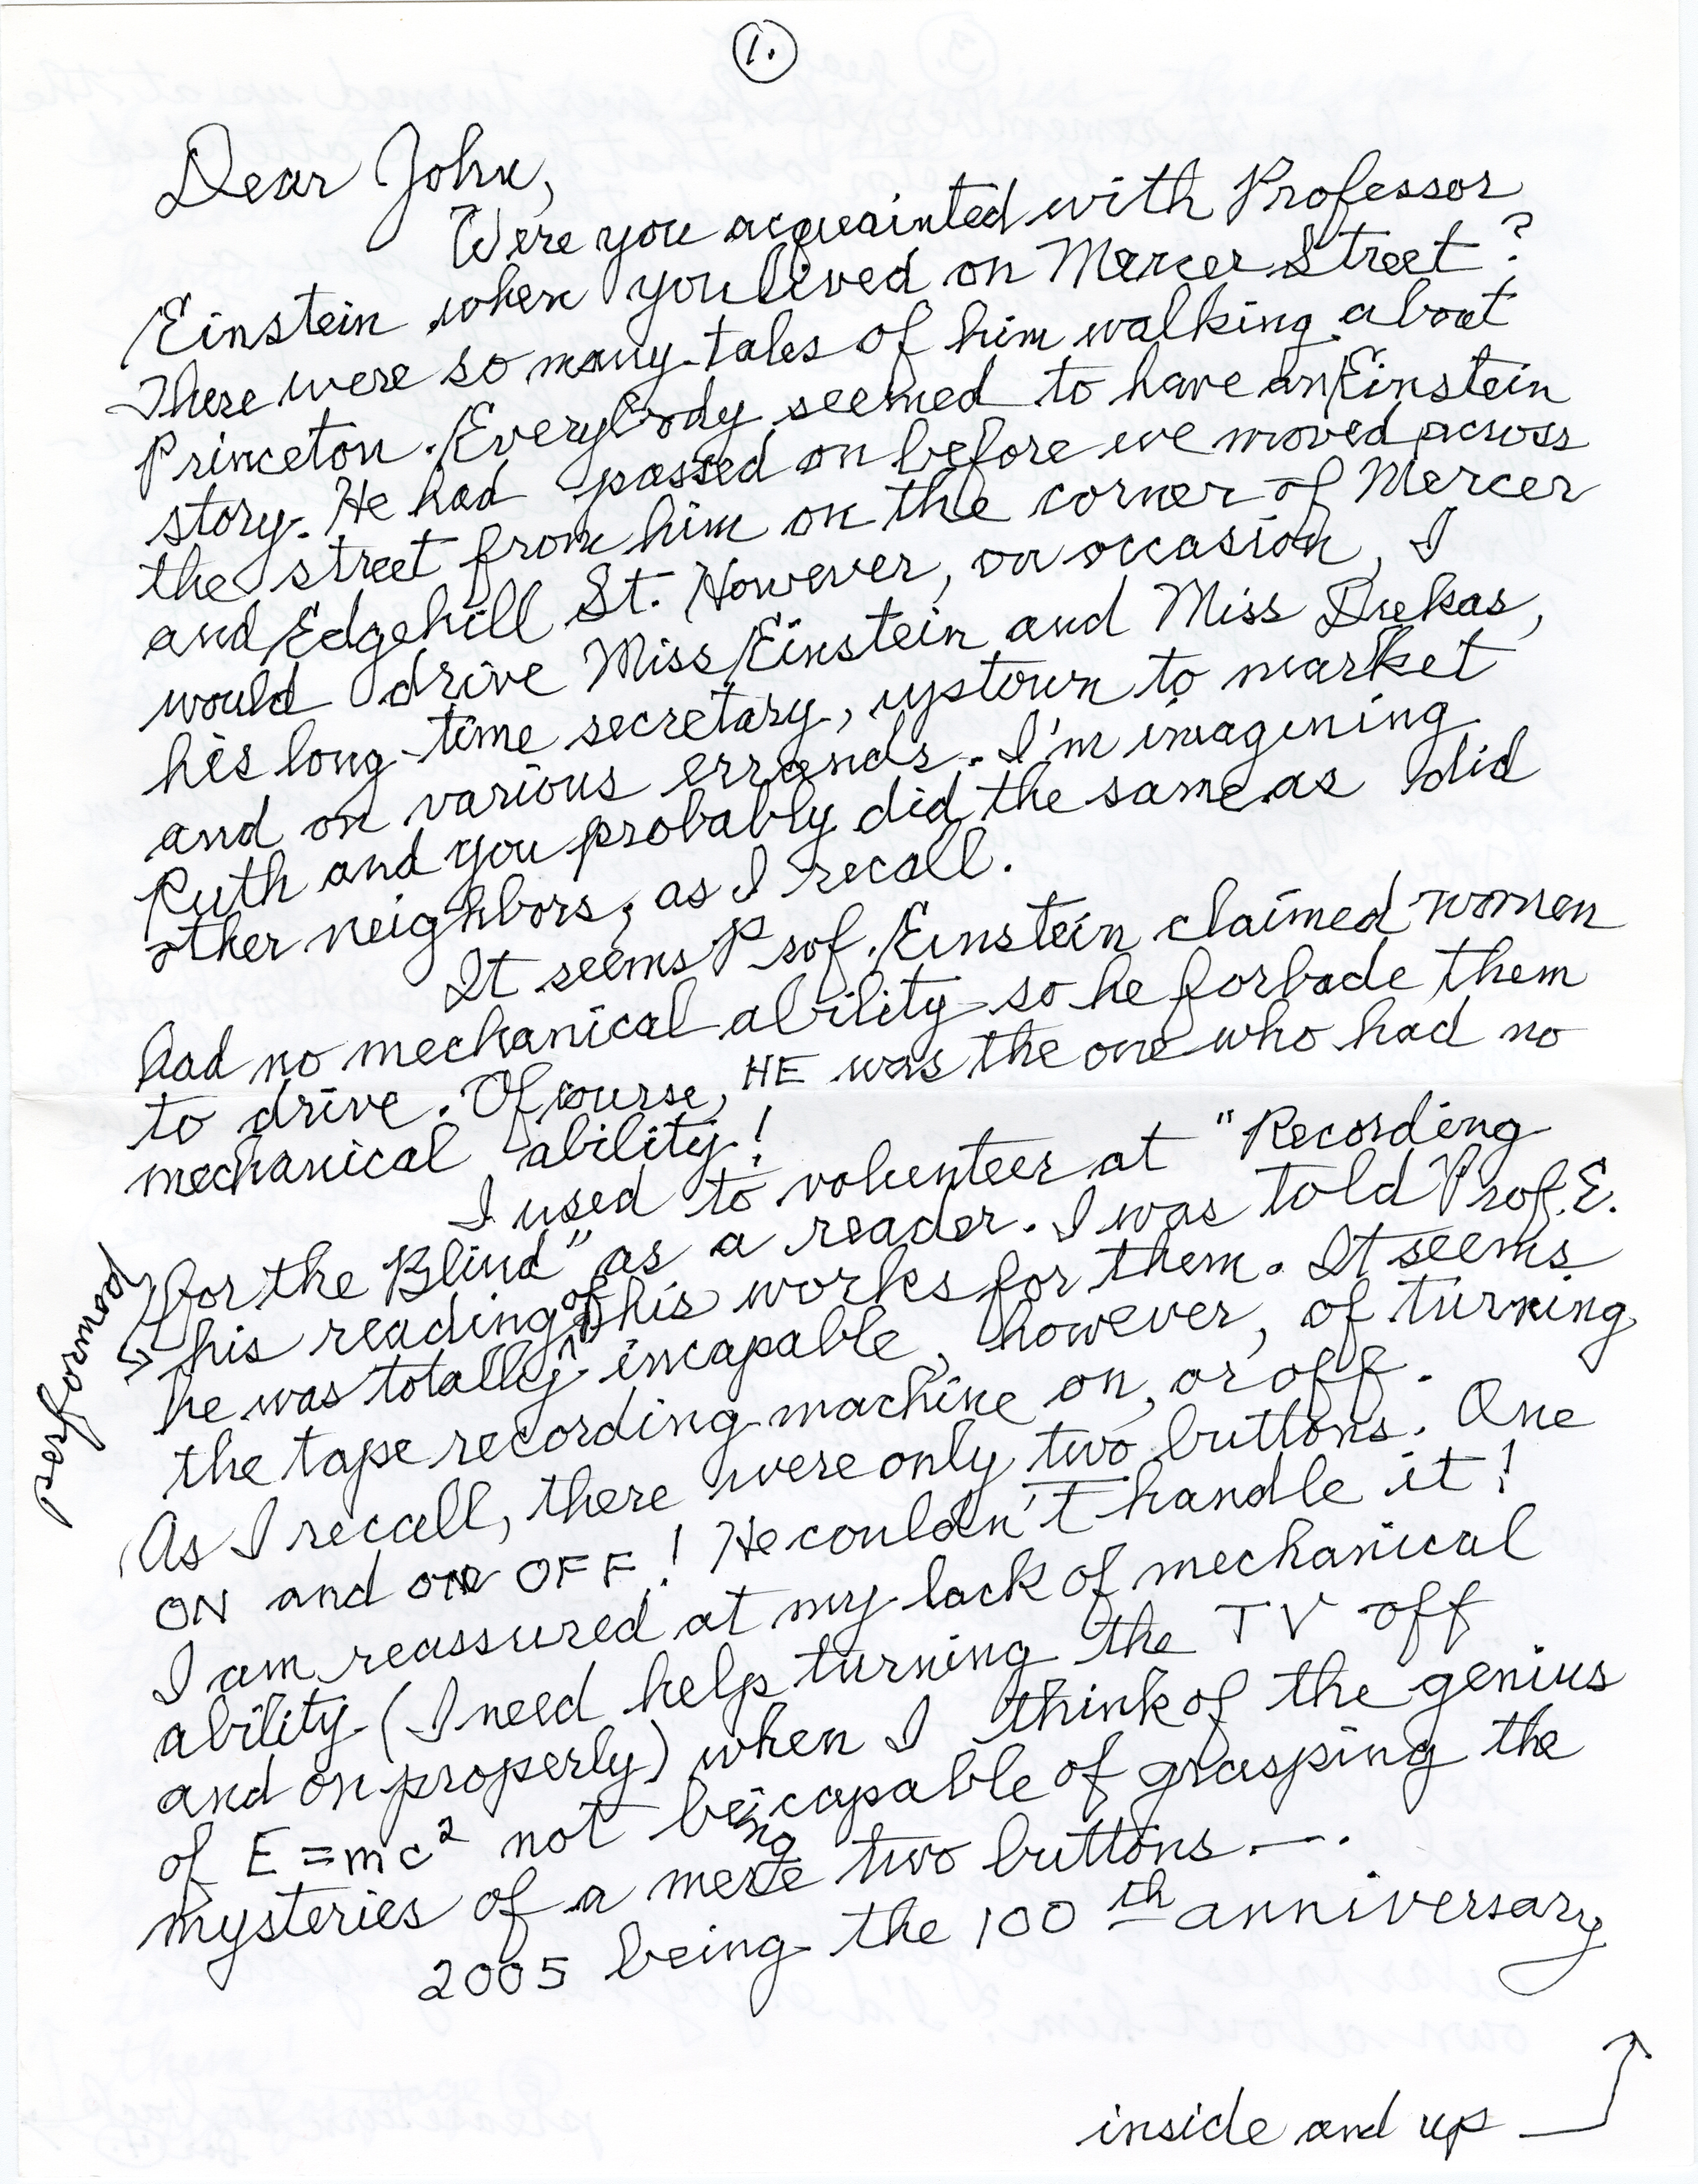 1.
Dear John,
Were you acquainted with Professor
Einstein when you lived on Mercer Street?
There were so many tales of him walking about
Princeton. Everybody seemed to have an Einstein
story. He had passed on before we moved across
the street from him on the corner of Mercer
and Edgehill St. However, on occasion, I
would drive Miss Einstein and Miss Dukas,
his long-time secretary, upstown to market
and on various errands. I'm imagining
Ruth and you probably did the same as did
other neighbors, as I recall.
It seems Prof. Einstein claimed women
had no mechanical ability so he forbade them
to drive. Of course, HE was the one who had no
mechanical ability!
I used to volunteer at "Recording
for the Blind" as a reader. I was told Prof. E.
performed his reading of his works for them. It seems
he was totally incapable, however, of turning
the tape recording machine on, or off.
As I recall, there were only two buttons. One
ON and one OFF! He couldn't handle it!
I am reassured at my lack of mechanical
ability (I need help turning the TV off
and on properly) when I think of the genius
of E=mc² not being capable of grasping the
mysteries of a mere two buttons —.
2005 being the 100th anniversary
inside and up